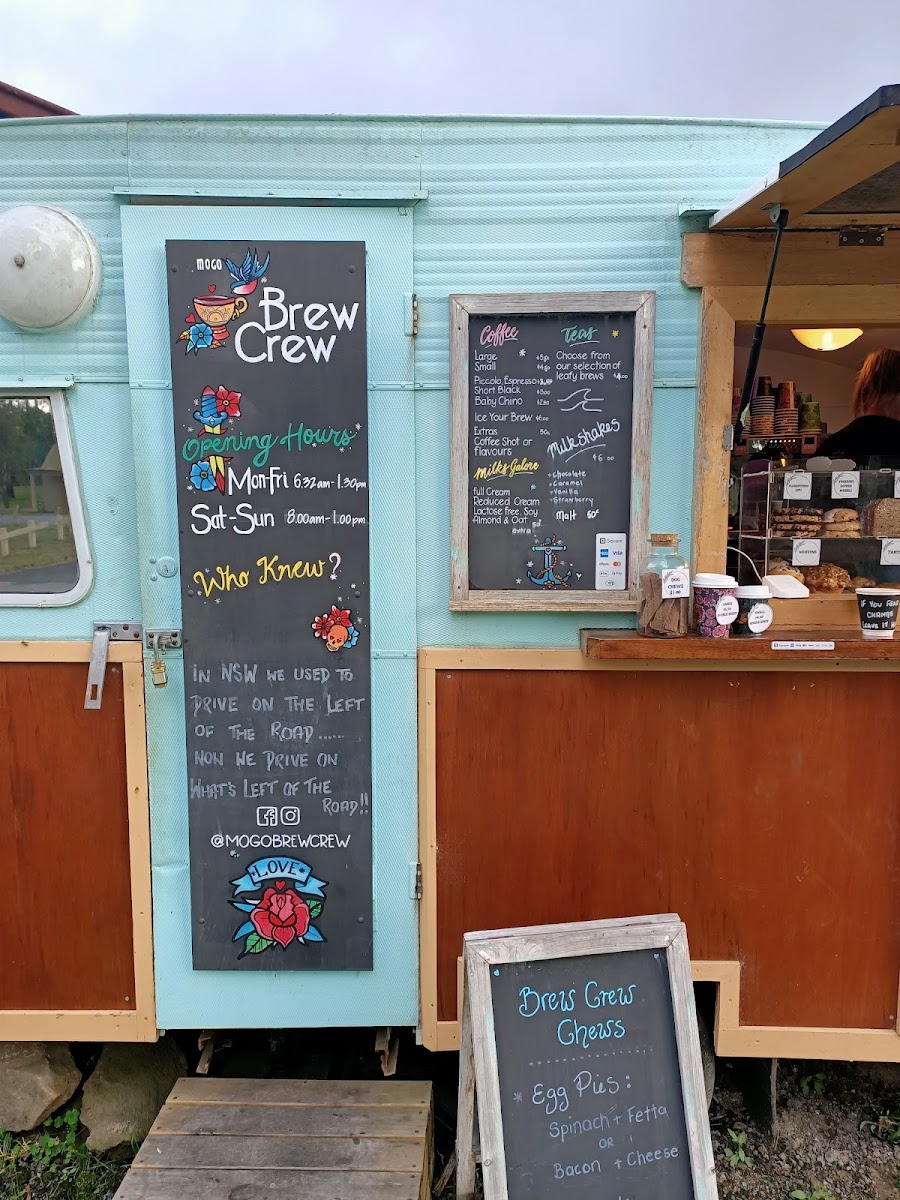 MOGO
Brew
Crew
Opening Hours
Mon-Fri 6.32am-1.30pm
Sat-Sun 8.00am-1.00pm
Who Knew?
IN NSW WE USED TO
DRIVE ON THE LEFT
OF THE ROAD......
NOW WE DRIVE ON
WHAT'S LEFT OF THE
ROAD!!
@MOGOBREWCREW
LOVE
Coffee
Large
Small
Piccolo Espresso
Short Black
Baby Chino
Ice Your Brew
Extras 50c
Coffee Shot or
flavours
Milks Galore
Full Cream
Reduced Cream
Lactose free, Soy
Almond & Oat
extra 50c
Teas
Choose from
our selection of
leafy brews
Milkshakes
Chocolate
Caramel
Vanilla
Strawberry
Malt 50c
Square
VISA
DOG
CHEWS
IF YOU FEAR
CHANGE
LEAVE IT
Brew Crew
Chews
Egg Pies:
Spinach + Fetta
OR
Bacon + Cheese